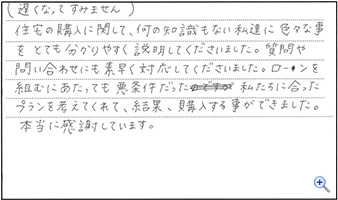 (遅くなってすみません)
住宅の購入に関して、何の知識もない私達に色々な事
をとても分かりやすく説明してくださいました。質問や
問い合わせにも素早く対応してくださいました。ローンを
組むにあたっても悪条件だった 私たちに合った
プランを考えてくれて、結果、購入する事ができました。
本当に感謝しています。